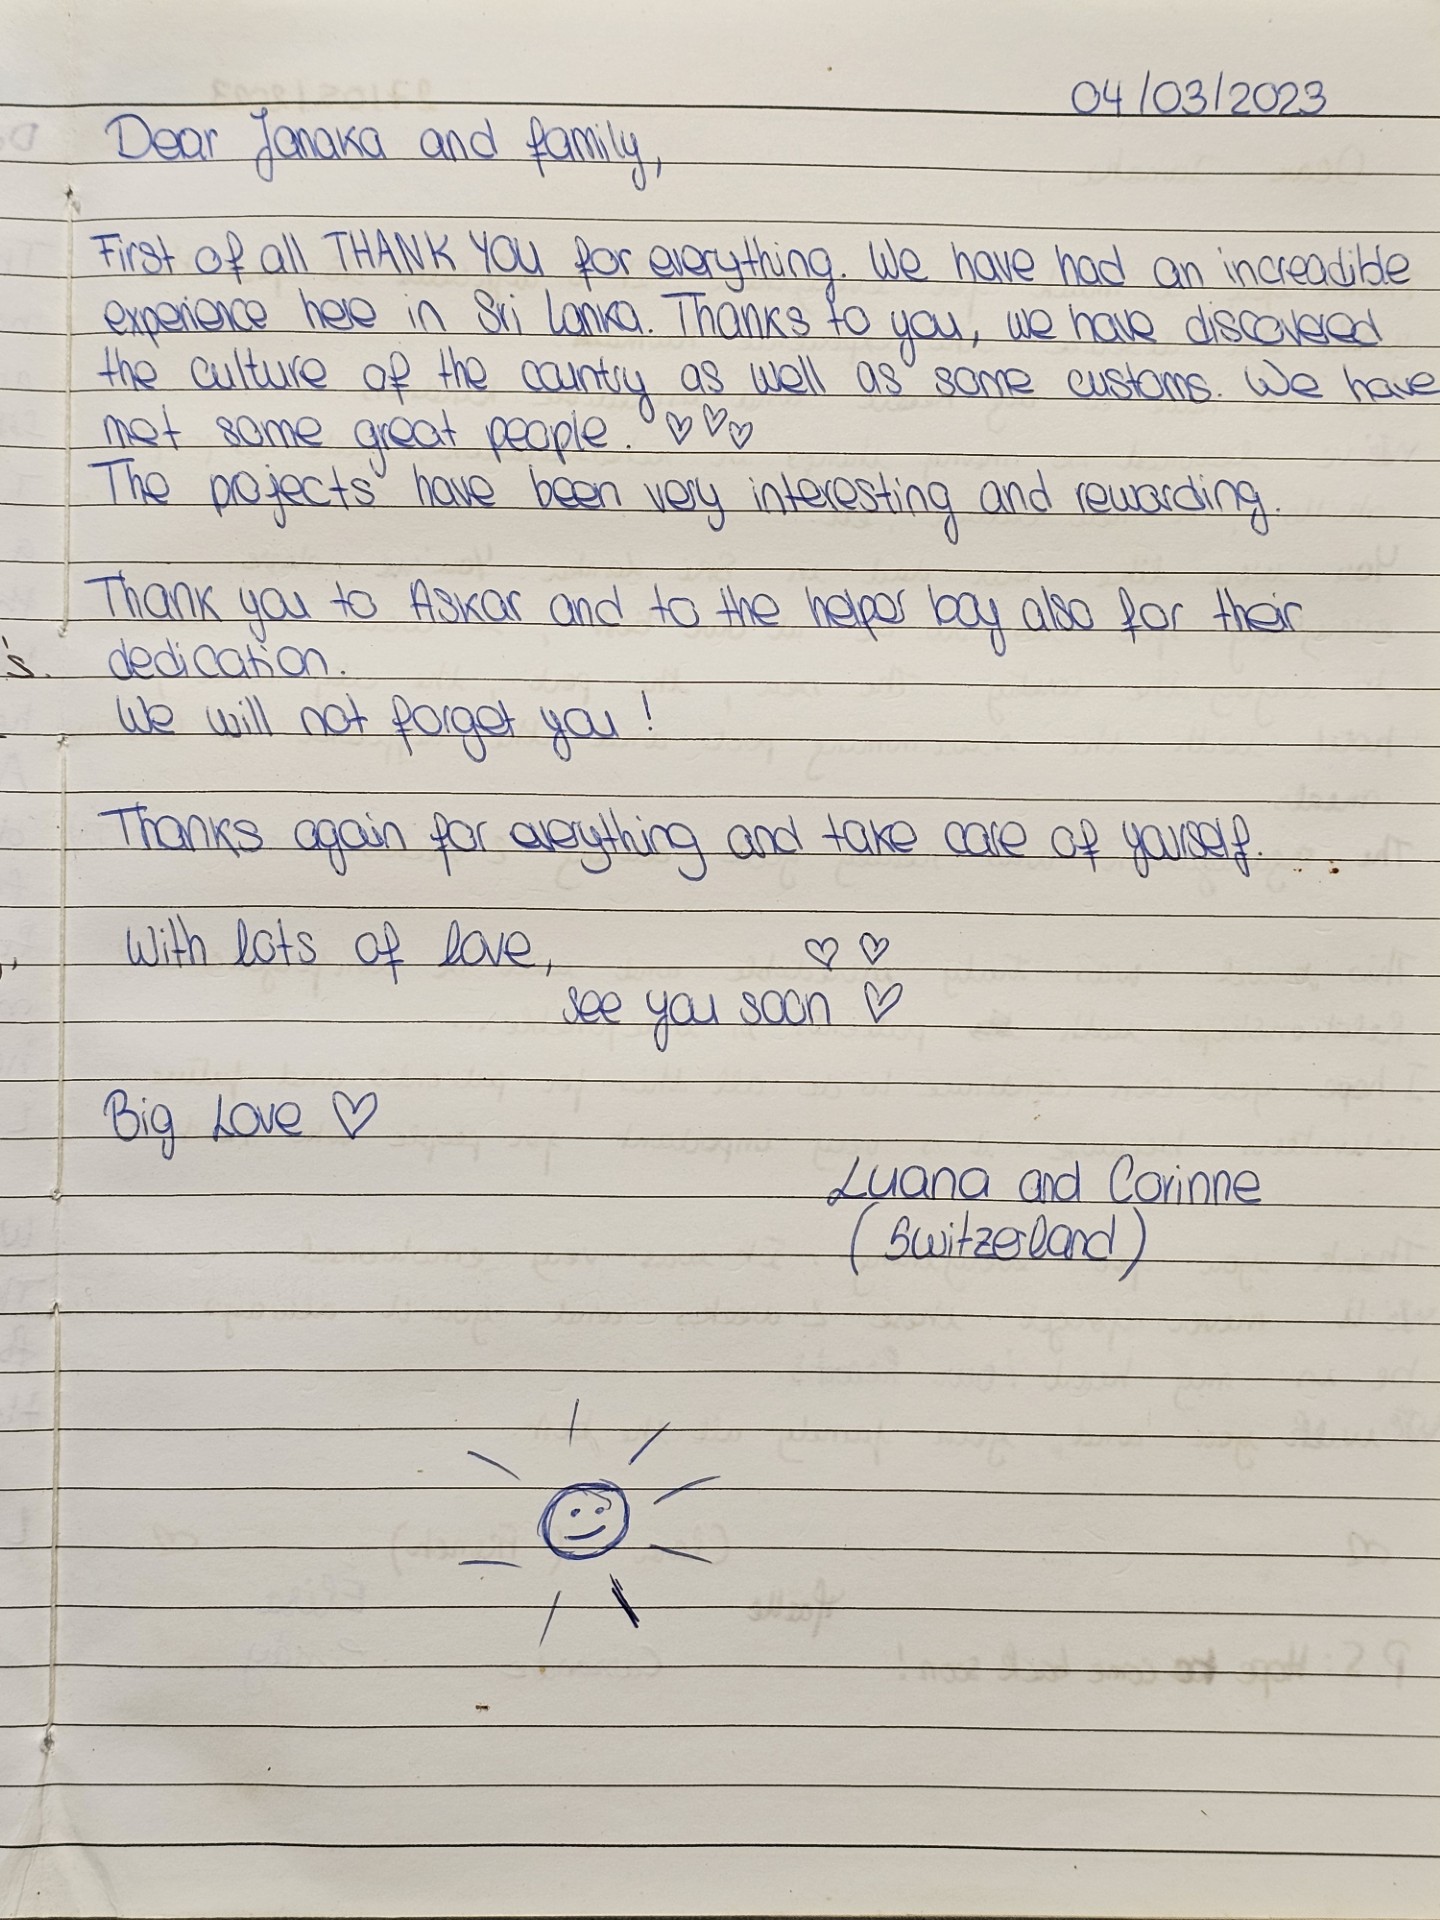 04/03/2023
Dear Janaka and family,
First of all THANK YOU for everything. We have had an increadible
experience here in Sri Lanka. Thanks to you, we have discovered
the culture of the country as well as some customs. We have
met some great people. ♡♡♡
The projects have been very interesting and rewarding.
Thank you to Askar and to the helper boy also for their
dedication.
We will not forget you!
Thanks again for everything and take care of yourself.
With lots of love, ♡ ♡
see you soon ♡
Big Love ♡
Luana and Corinne
(Switzerland)